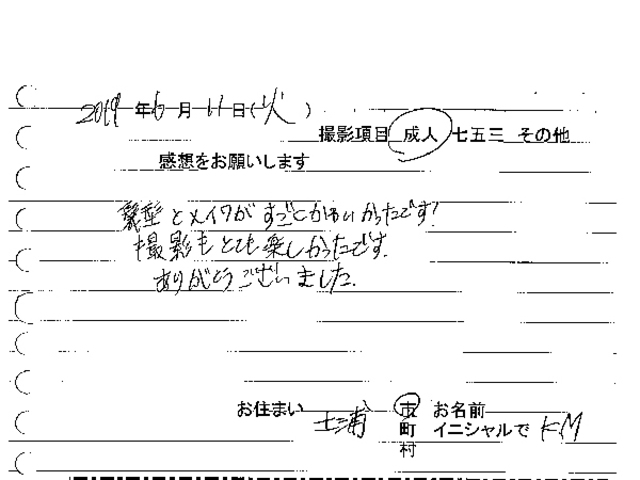 2019年6月11日(火)
撮影項目 成人 七五三 その他
感想をお願いします
髪型とメイクがすごくかわいかったです!
撮影もとても楽しかったです。
ありがとうございました。
お住まい 土浦 市 お名前
町 イニシャルで K.M
村